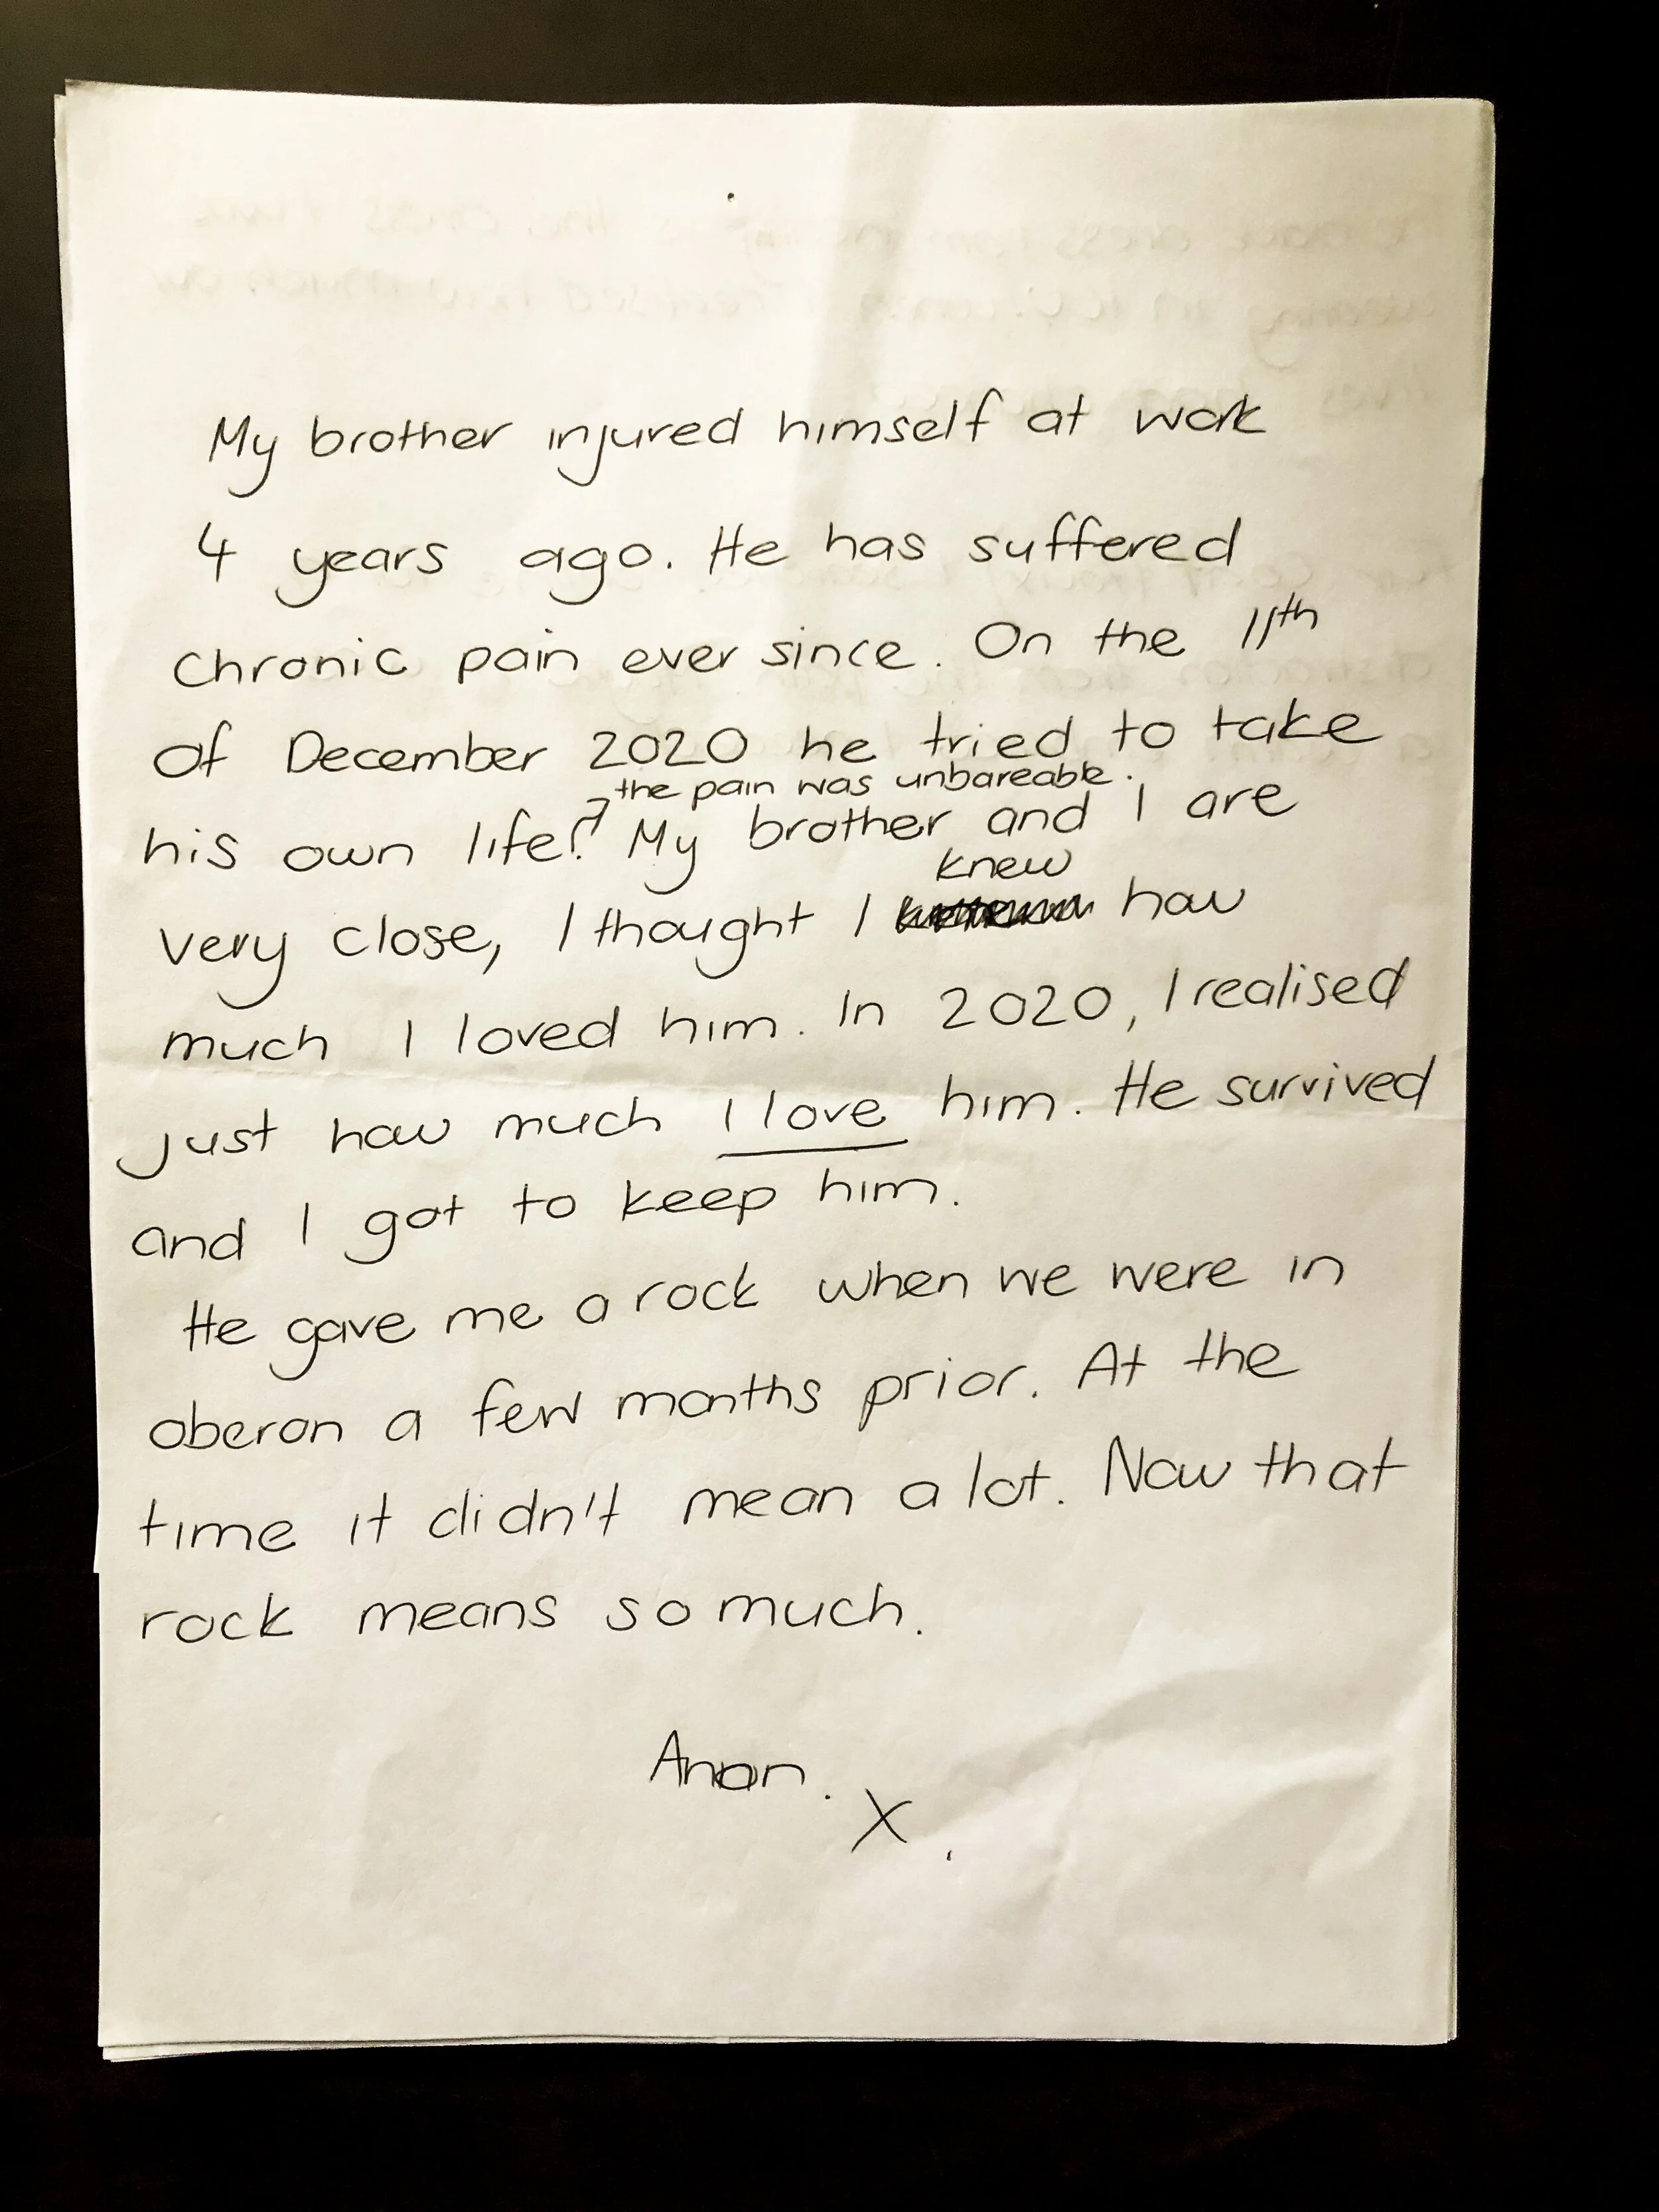 My brother injured himself at work
4 years ago. He has suffered
chronic pain ever since. On the 11th
of December 2020 he tried to take
the pain was unbareable.
his own life. My brother and I are
knew
very close, I thought I how
much I loved him. In 2020, I realised
just how much I love him. He survived
and I got to keep him.
He gave me a rock when we were in
oberon a few months prior. At the
time it didn't mean a lot. Now that
rock means so much.
Anon.
X.